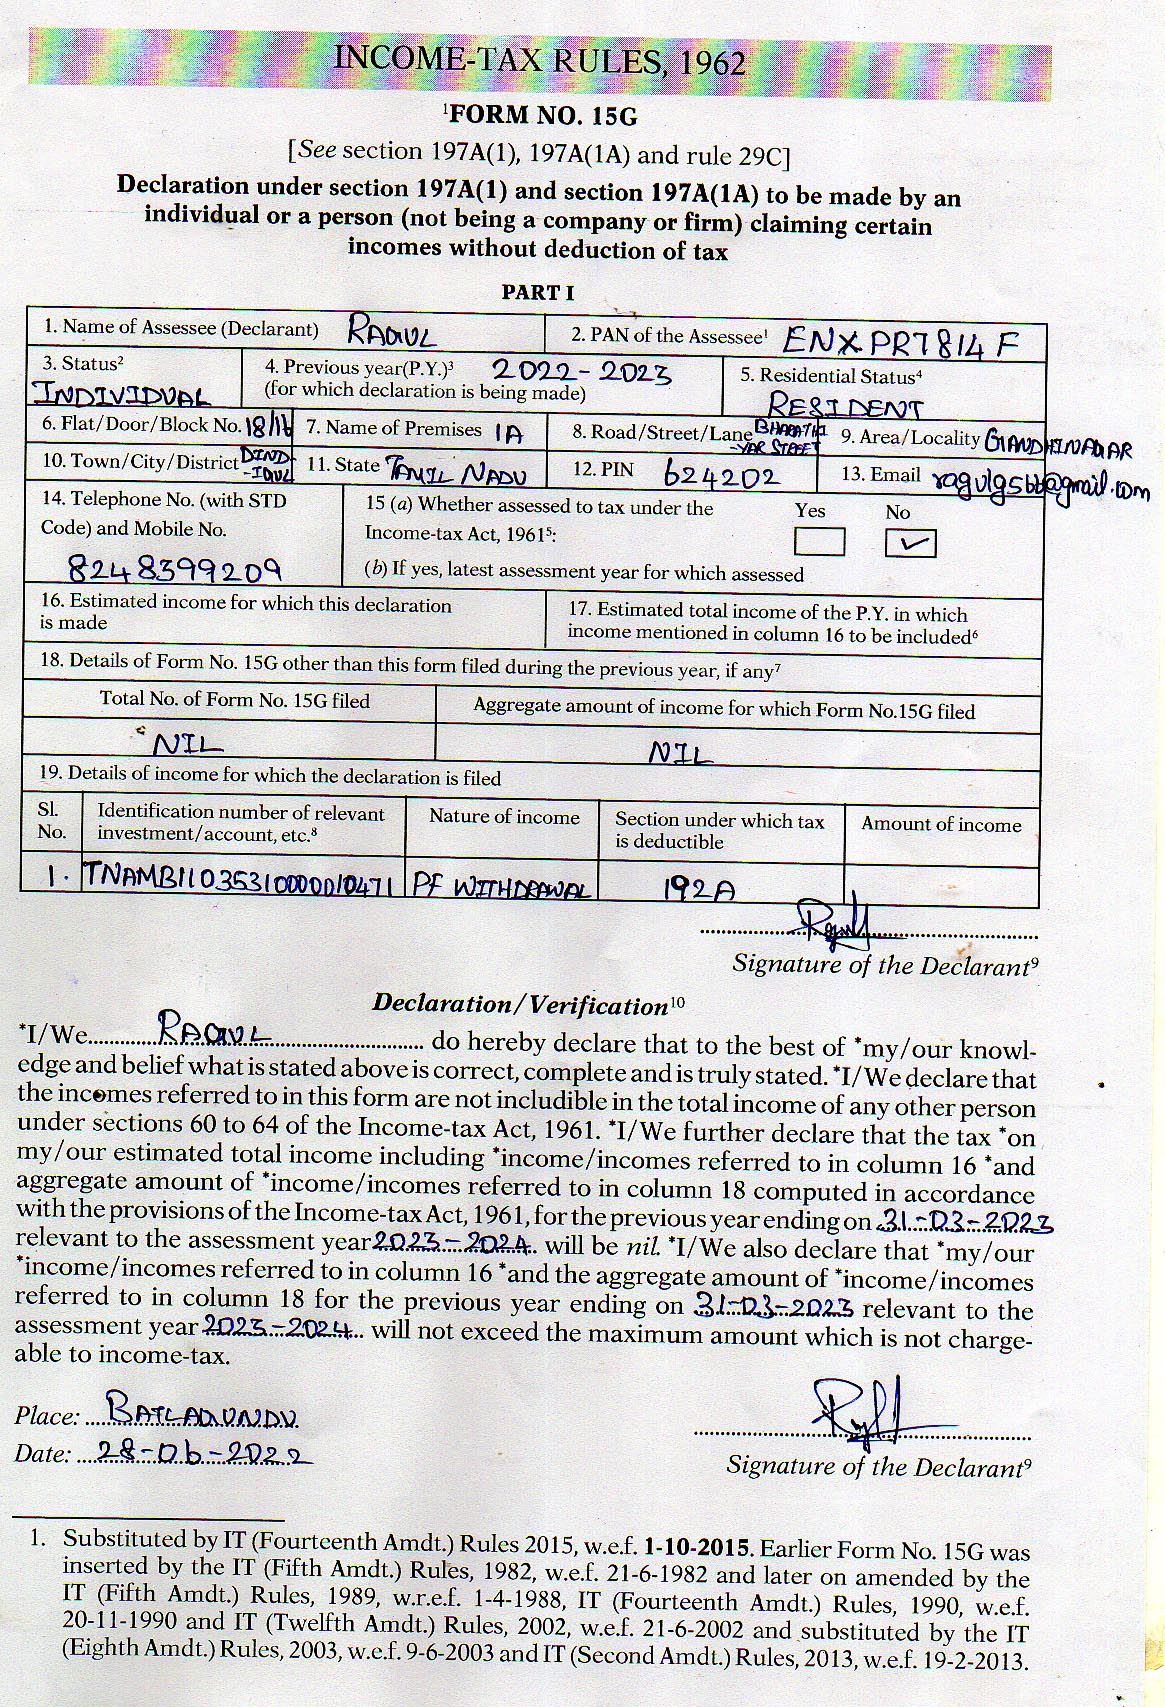 INCOME-TAX RULES, 1962
¹FORM NO. 15G
[See section 197A(1), 197A(1A) and rule 29C]
Declaration under section 197A(1) and section 197A(1A) to be made by an
individual or a person (not being a company or firm) claiming certain
incomes without deduction of tax
PART I
1. Name of Assessee (Declarant) RAGUL 2. PAN of the Assessee¹ ENXPR7814F
3. Status² INDIVIDUAL 4. Previous year(P.Y.)³ 2022-2023 (for which declaration is being made) 5. Residential Status⁴ RESIDENT
6. Flat/Door/Block No. 18/16 7. Name of Premises 1A 8. Road/Street/Lane BHARATHI-YAR STREET 9. Area/Locality GANDHINAGAR
10. Town/City/District DIND-IGUL 11. State TAMIL NADU 12. PIN 624202 13. Email ragulg5bb@gmail.com
14. Telephone No. (with STD Code) and Mobile No. 8248399209
15 (a) Whether assessed to tax under the Income-tax Act, 1961⁵: Yes No ✓
(b) If yes, latest assessment year for which assessed
16. Estimated income for which this declaration is made
17. Estimated total income of the P.Y. in which income mentioned in column 16 to be included⁶
18. Details of Form No. 15G other than this form filed during the previous year, if any⁷
Total No. of Form No. 15G filed Aggregate amount of income for which Form No.15G filed
NIL NIL
19. Details of income for which the declaration is filed
Sl. No. Identification number of relevant investment/account, etc.⁸ Nature of income Section under which tax is deductible Amount of income
1. TNAMB11035310000010471 PF WITHDRAWAL 192A
Signature of the Declarant⁹
Declaration/Verification¹⁰
*I/We............RAGUL............ do hereby declare that to the best of *my/our knowl-
edge and belief what is stated above is correct, complete and is truly stated. *I/We declare that
the incomes referred to in this form are not includible in the total income of any other person
under sections 60 to 64 of the Income-tax Act, 1961. *I/We further declare that the tax *on
my/our estimated total income including *income/incomes referred to in column 16 *and
aggregate amount of *income/incomes referred to in column 18 computed in accordance
with the provisions of the Income-tax Act, 1961, for the previous year ending on 31-03-2023
relevant to the assessment year 2023-2024 will be nil. *I/We also declare that *my/our
*income/incomes referred to in column 16 *and the aggregate amount of *income/incomes
referred to in column 18 for the previous year ending on 31-03-2023 relevant to the
assessment year 2023-2024 will not exceed the maximum amount which is not charge-
able to income-tax.
Place: BATLAGUNDU
Date: 28-06-2022
Signature of the Declarant⁹
1. Substituted by IT (Fourteenth Amdt.) Rules 2015, w.e.f. 1-10-2015. Earlier Form No. 15G was
inserted by the IT (Fifth Amdt.) Rules, 1982, w.e.f. 21-6-1982 and later on amended by the
IT (Fifth Amdt.) Rules, 1989, w.r.e.f. 1-4-1988, IT (Fourteenth Amdt.) Rules, 1990, w.e.f.
20-11-1990 and IT (Twelfth Amdt.) Rules, 2002, w.e.f. 21-6-2002 and substituted by the IT
(Eighth Amdt.) Rules, 2003, w.e.f. 9-6-2003 and IT (Second Amdt.) Rules, 2013, w.e.f. 19-2-2013.